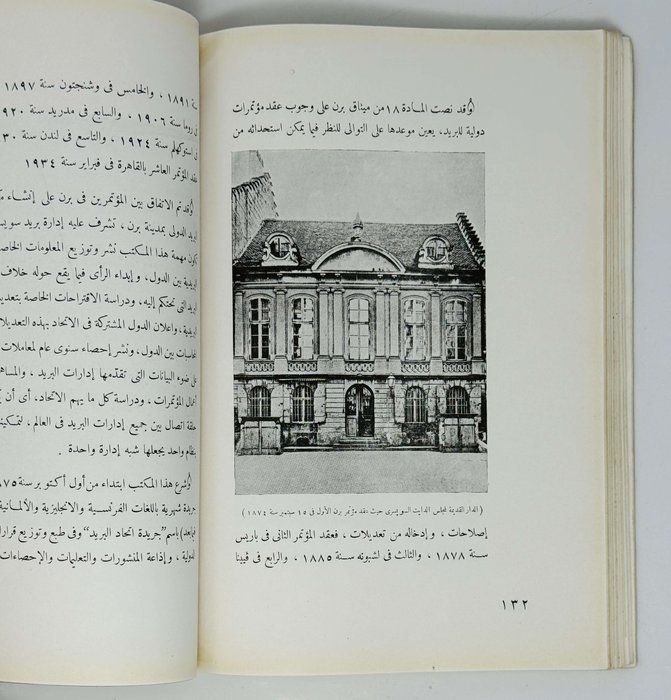 وقد نصت المادة ١٨ من ميثاق برن على وجوب عقد مؤتمرات
دولية للبريد، يعين موعدها على التوالى للنظر فيما يمكن استحداثه من
( الدار القديمة لمجلس الدايت السويسرى حيث عقد مؤتمر برن الأول فى ١٥ سبتمبر سنة ١٨٧٤ )
إصلاحات ، وإدخاله من تعديلات ، فعقد المؤتمر الثانى بباريس
سـنة ١٨٧٨ ، والثالث فى لشبونه سـنة ١٨٨٥ ، والرابع فى ڤيينا
١٣٢
سنة ١٨٩١ ، والخامس فى وشنجتون سنة ١٨٩٧
فى روما سنة ١٩٠٦ ، والسابع فى مدريد سنة
فى استوكهلم سنة ١٩٢٤ ، والتاسع فى لندن سنة
عقد المؤتمر العاشر بالقاهرة فى فبراير سنة ١٩٣٤
وقد تم الاتفاق بين المؤتمرين فى برن على إنشاء
البريد الدولى بمدينة برن ، تشرف عليه إدارة بريد
تكون مهمة هذا المكتب نشر وتوزيع المعلومات
البريدية بين الدول، وإبداء الرأى فيما يقع حوله خلاف
البريد التى تحتكم إليه، ودراسة الاقتراحات الخاصة
البريدية، واعلان الدول المشتركة فى الاتحاد بهذه التعديلات
الحسابات بين الدول، ونشر إحصاء سنوى عام لمعاملات
على ضوء البيانات التى تقدّمها إدارات البريد ،
أعمال المؤتمرات ، ودراسة كل ما يهم الاتحاد، أى أن
حلقة اتصال بين جميع إدارات البريد فى العالم ،
بنظام واحد يجعلها شبه إدارة واحدة .
وشرع هذا المكتب ابتداء من أول أكتوبر سنة
جريدة شهرية باللغات الفرنسية والانجليزية والألمانية
فيما بعد) باسم "جريدة اتحاد البريد" وفى طبع وتوزيع
الدولية ، وإذاعة المنشورات والتعليمات والإحصاءات